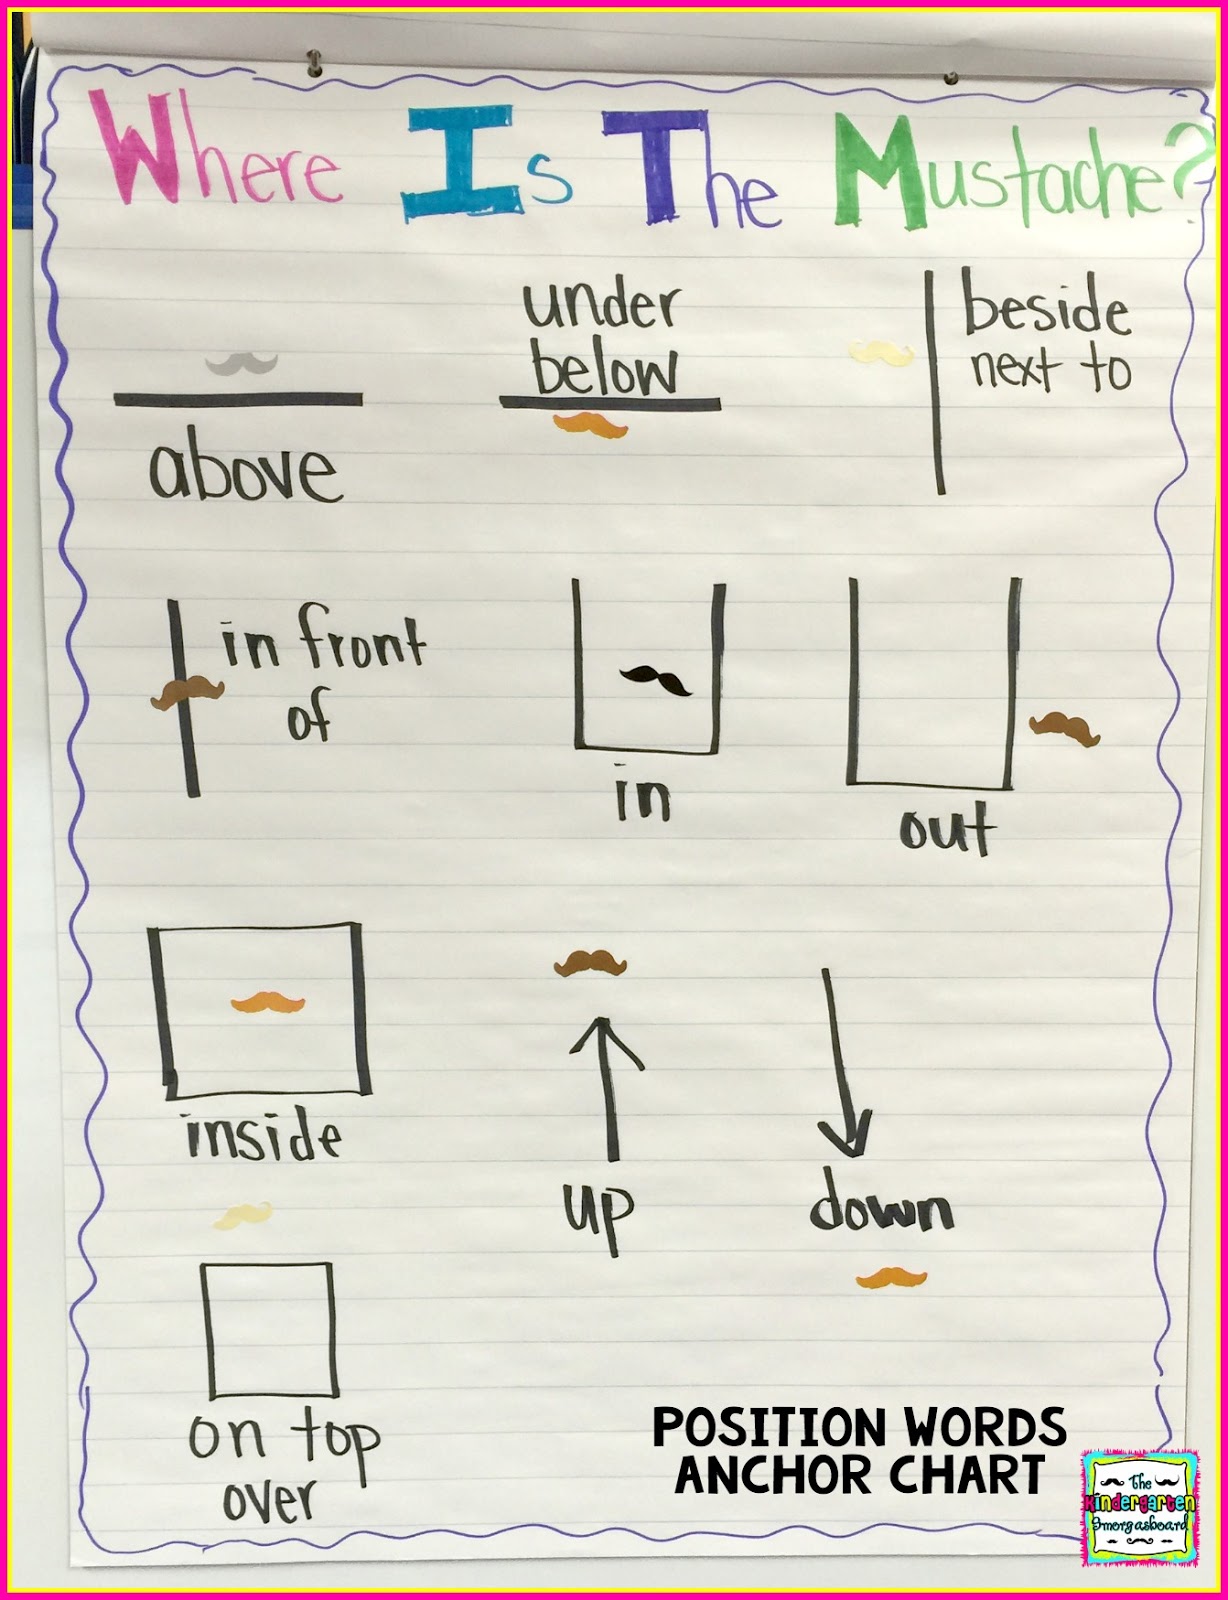 Where Is The Mustache?
above
under
below
beside
next to
in front
of
in
out
inside
up
down
on top
over
POSITION WORDS
ANCHOR CHART
The
Kindergarten
Smorgasboard